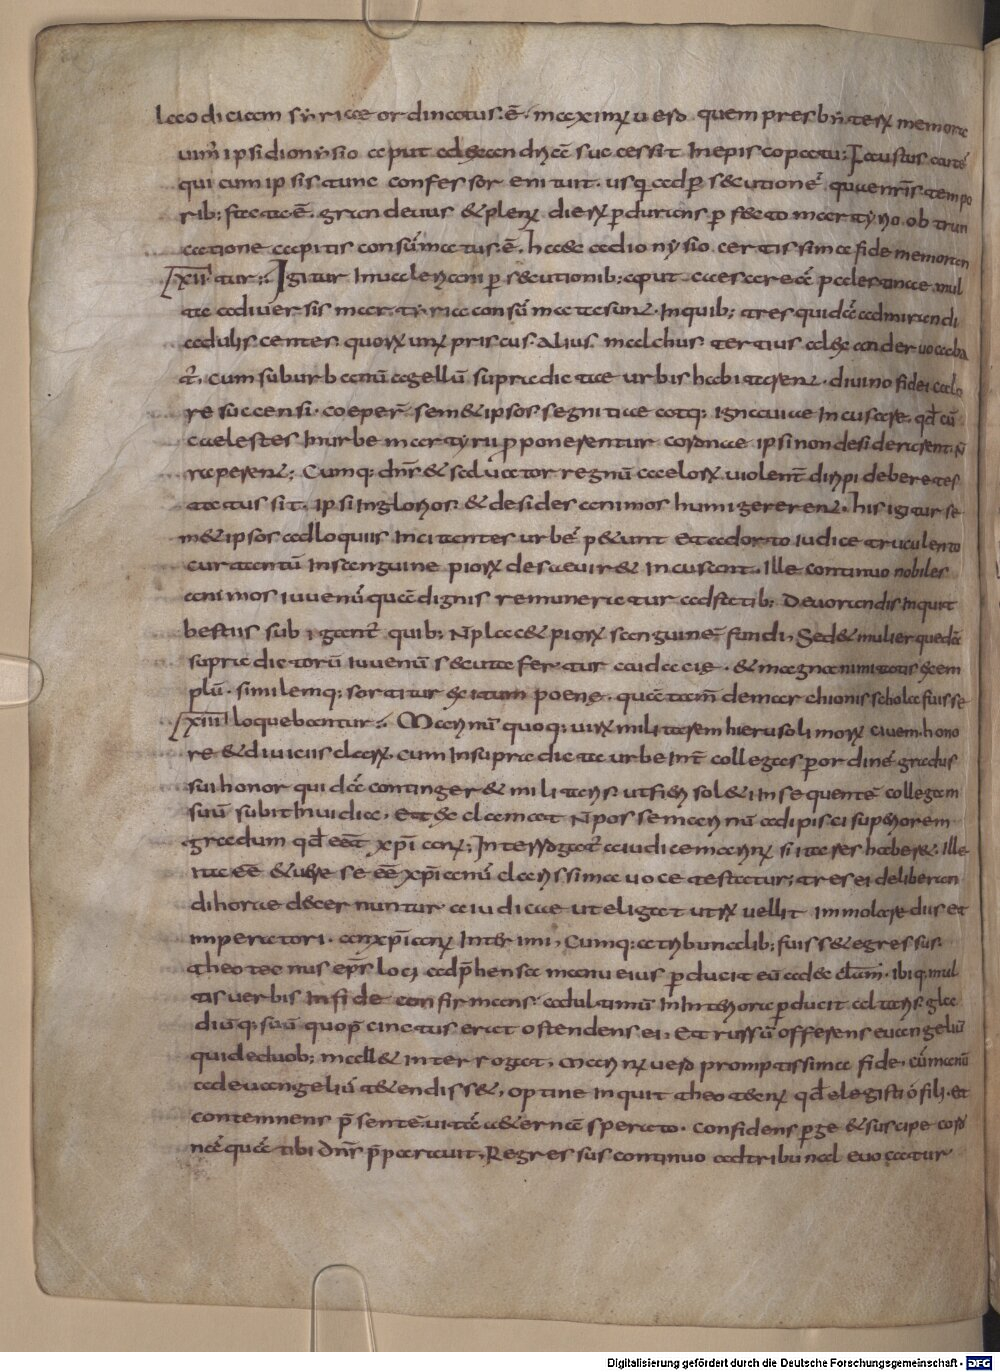 laodiciam syriae ordinatus. ē. maximꝰ uero quem presbyterū memora
uim' ipsi dionysio aput alexandriā successit in episcopatu; Faustus autē
qui cum ipsis tunc confessor enituit. usq; ad p̄secutionē quae nr̄is tempo
rib; facta ē. grandeuus & plenꝰ dierū p̄durans p̄fecto martyrio. ob trun
catione capitis consūmatus. ē. haec a dionysio certissima fide memoran
XII tur; Igitur in ualeriani p̄secutionib; aput caesareā palestinae mul
ta a diuersis martyria consūmata sunt. In quib; tres quidā admirandi
adulescentes quorū unꝰ priscus. alius malchus tertius alexander uocaba
t̄. cum suburbanū agellū supradictae urbis habitarent. diuino fidei calo
re succensi. coeper̄ sem&ipsos segnitiae atq; ignauiae incusare. qđ cū
caelestes in urbe martyrū p̄ponerentur coronae ipsi non desiderarent. n̄
raperent; Cumq; dn̄s & saluator regnū caelorū uiolent̄ diripi debere tes
tatus sit. ipsi inglorios & desides animos humi gererent. his igitur se
m&ipsos adloquiis incitantes urbē p&unt et adorto iudice truculento
cur tantū in sanguine piorū desaeuir& incusant. Ille continuo nobiles
animos iuuenū quā dignis remuneratur adfatib; Deuorandis inquit
bestiis subigant̄ quib; n̄ plac& piorū sanguinē fundi. Sed & mulier quedā
supradictorū iuuenū secuta fertur audacię. & magnanimitatis exem
plū. similemq; sortitur exitum poenę. quā tam̄ de marchionis schola fuisse
XIII loquebantur; Marinū quoq; uirū militarem hierusolimorū ciuem. hono
re & diuiciis clarū. cum in supradicta urbe int̄ collegas p̄ ordinē gradus
sui honor quidā continger& militaris. ut fieri sol& in sequentē collegam
suū subit inuidia. et exclamat n̄ posse marinū adipisci superiorem
gradum qđ eēt xp̄ianꝰ; Interrogat̄ a iudice marinꝰ si ita res haber&. Ille
ita eē & uere se eē xp̄ianū clarissima uoce testatur; tres ei deliberan
di horae decernuntur a iudice ut eligat utrū uellit immolare diis et
imperatori. an xp̄ianꝰ interimi. Cumq; a tribunalib; fuiss& egressus.
theotecnus ep̄s loci adp̄hensa manu eius p̄ducit eū ad ecclam̄. ibiq; mul
tis uerbis in fide confirmans ad ultimū in interiora p̄ducit altaris. gla
diūq; suū quo p̄cinctus erat ostendens ei. et rursū offerens euangeliū
quid e duob; mall& interrogat. Marinꝰ uero promptissima fide. cū manū
ad euangeliū t&endiss&. optine inquit theotecnꝰ qđ elegisti ó fili. et
contemnens p̄sentē uitā aeternā sperato. confidens p̄ge & suscipe coro
nā quā tibi dn̄s p̄parauit. Regressus continuo ad tribunal euocatur
Digitalisierung gefördert durch die Deutsche Forschungsgemeinschaft - DFG